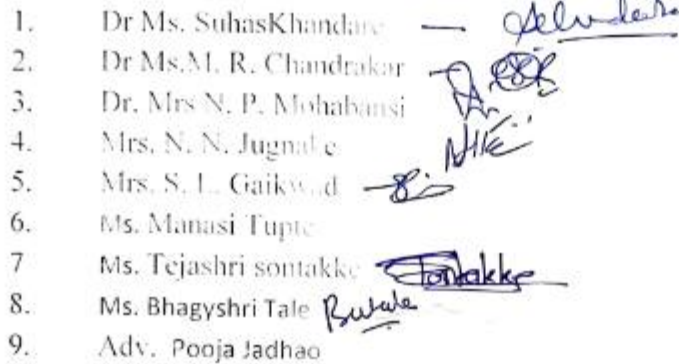 1. Dr Ms. SuhasKhandare —
2. Dr Ms.M. R. Chandrakar —
3. Dr. Mrs N. P. Mohabansi
4. Mrs. N. N. Jugnake
5. Mrs. S. L. Gaikwad —
6. Ms. Manasi Tupte
7 Ms. Tejashri sontakke Sontakke
8. Ms. Bhagyshri Tale
9. Adv. Pooja Jadhao